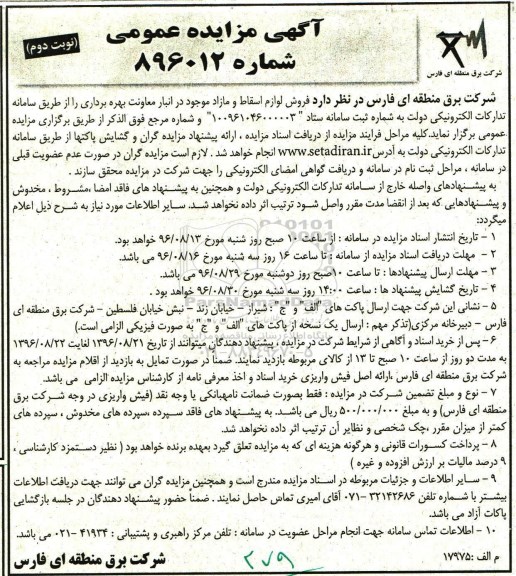 آگهی مزایده عمومی
شماره ۸۹۶۰۱۲
(نوبت دوم)
شرکت برق منطقه ای فارس
شرکت برق منطقه ای فارس در نظر دارد فروش لوازم اسقاط و مازاد موجود در انبار معاونت بهره برداری را از طریق سامانه
تدارکات الکترونیکی دولت به شماره ثبت سامانه ستاد "۱۰۰۹۶۱۰۴۶۰۰۰۰۰۳" و شماره مرجع فوق الذکر از طریق برگزاری مزایده
عمومی برگزار نماید.کلیه مراحل فرایند مزایده از دریافت اسناد مزایده ، ارائه پیشنهاد مزایده گران و گشایش پاکتها از طریق سامانه
تدارکات الکترونیکی دولت به آدرس www.setadiran.ir انجام خواهد شد . لازم است مزایده گران در صورت عدم عضویت قبلی
در سامانه ، مراحل ثبت نام در سامانه و دریافت گواهی امضای الکترونیکی را جهت شرکت در مزایده محقق سازند .
به پیشنهادهای واصله خارج از سامانه تدارکات الکترونیکی دولت و همچنین به پیشنهاد های فاقد امضا ،مشروط ، مخدوش
و پیشنهادهایی که بعد از انقضا مدت مقرر واصل شود ترتیب اثر داده نخواهد شد. سایر اطلاعات مورد نیاز به شرح ذیل اعلام
میگردد:
۱ - تاریخ انتشار اسناد مزایده در سامانه : از ساعت ۱۰ صبح روز شنبه مورخ ۹۶/۰۸/۱۳ خواهد بود.
۲ - مهلت دریافت اسناد مزایده از سامانه : تا ساعت ۱۶ روز سه شنبه مورخ ۹۶/۰۸/۱۶ می باشد.
۳ - مهلت ارسال پیشنهادها : تا ساعت ۱۰صبح روز دوشنبه مورخ ۹۶/۰۸/۲۹ می باشد.
۴ - تاریخ گشایش پیشنهاد ها : ساعت ۱۴:۰۰ روز سه شنبه مورخ ۹۶/۰۸/۳۰ خواهد بود .
۵ - نشانی این شرکت جهت ارسال پاکت های "الف" و "ج" : شیراز - خیابان زند - نبش خیابان فلسطین - شرکت برق منطقه ای
فارس - دبیرخانه مرکزی(تذکر مهم : ارسال یک نسخه از پاکت های "الف" و "ج" به صورت فیزیکی الزامی است.)
۶ - پس از خرید اسناد و آگاهی از شرایط شرکت در مزایده ، پیشنهاد دهندگان میتوانند از تاریخ ۱۳۹۶/۰۸/۲۱ لغایت ۱۳۹۶/۰۸/۲۲
به مدت دو روز از ساعت ۱۰ صبح تا ۱۳ از کالای مربوطه بازدید نمایند. ضمناً در صورت تمایل به بازدید از اقلام مزایده مراجعه به
شرکت برق منطقه ای فارس ،ارائه اصل فیش واریزی خرید اسناد و اخذ معرفی نامه از کارشناس مزایده الزامی می باشد.
۷ - نوع و مبلغ تضمین شرکت در مزایده : فقط بصورت ضمانت نامهبانکی یا وجه نقد (فیش واریزی در وجه شرکت برق
منطقه ای فارس) و به مبلغ ۵۰۰/۰۰۰/۰۰۰ ریال می باشد. به پیشنهاد های فاقد سپرده ،سپرده های مخدوش ، سپرده های
کمتر از میزان مقرر ،چک شخصی و نظایر آن ترتیب اثر داده نخواهد شد.
۸ - پرداخت کسورات قانونی و هرگونه هزینه ای که به مزایده تعلق گیرد بعهده برنده خواهد بود ( نظیر دستمزد کارشناسی ،
۹ درصد مالیات بر ارزش افزوده و غیره )
۹ - سایر اطلاعات و جزئیات مربوطه در اسناد مزایده مندرج است و همچنین مزایده گران می توانند جهت دریافت اطلاعات
بیشتر با شماره تلفن ۳۲۱۴۲۶۸۶ -۰۷۱ آقای امیری تماس حاصل نمایند . ضمناً حضور پیشنهاد دهندگان در جلسه بازگشایی
پاکات آزاد می باشد.
۱۰ - اطلاعات تماس سامانه جهت انجام مراحل عضویت در سامانه : تلفن مرکز راهبری و پشتیبانی : ۴۱۹۳۴ -۰۲۱ می باشد.
م الف :۱۷۹۷۵
۲۷۹
شرکت برق منطقه ای فارس